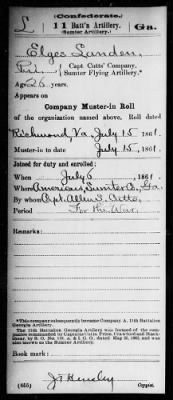 (Confederate.)
L 11 Batt'n Artillery. Ga.
(Sumter Artillery.)
Elges Landen,
Pvt., Capt Cutts' Company,
Sumter Flying Artillery.*
Age 26 years.
Appears on
Company Muster-in Roll
of the organization named above. Roll dated
Richmond, Va, July 15, 1861.
Muster-in to date July 15, 1861.
Joined for duty and enrolled:
When July 6, 1861.
Where Americus, Sumter Co, Ga.
By whom Capt. Allen S. Cutts.
Period For the War.
Remarks:
*This company subsequently became Company A, 11th Battalion
Georgia Artillery.
The 11th Battalion Georgia Artillery was formed of the companies
commanded by Captains
also known as the Sumter Battalion Artillery.
Book mark:
J T Hensley
(655) Copyist.